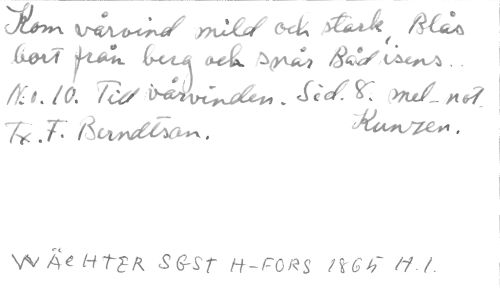 Kom vårvind mild och stark, Blås
bort från berg och snår Båd isens..
N:o. 10. Tid vårvinden. Sid. 8. mel-not.
Tx. F. Berndtson. Kunzen.
WÄCHTER SGST H-FORS 1865 H.1.